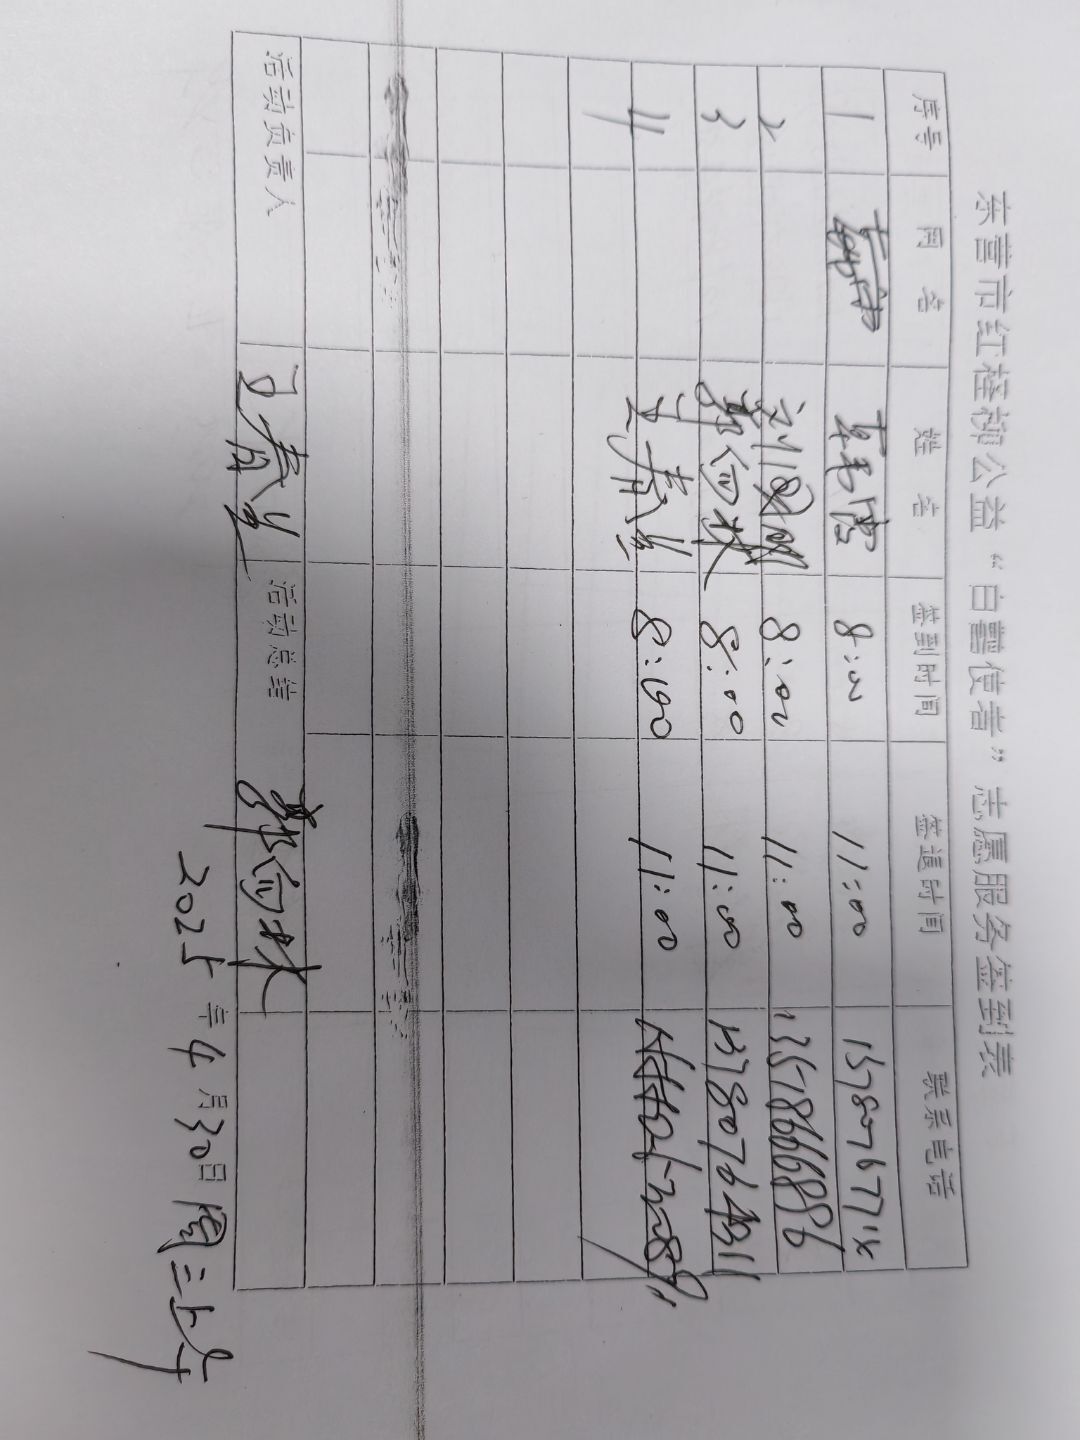 东营市红柽柳公益“白鹭使者”志愿服务签到表
序号 网名 姓名 签到时间 签退时间 联系电话
1 8:00 11:00
2 8:00 11:00 13578666886
3 郭向林 8:00 11:00 13780764311
4 王春生 8:00 11:00
活动负责人 王春生 活动总结 郭向林
2025年4月30日周三上午